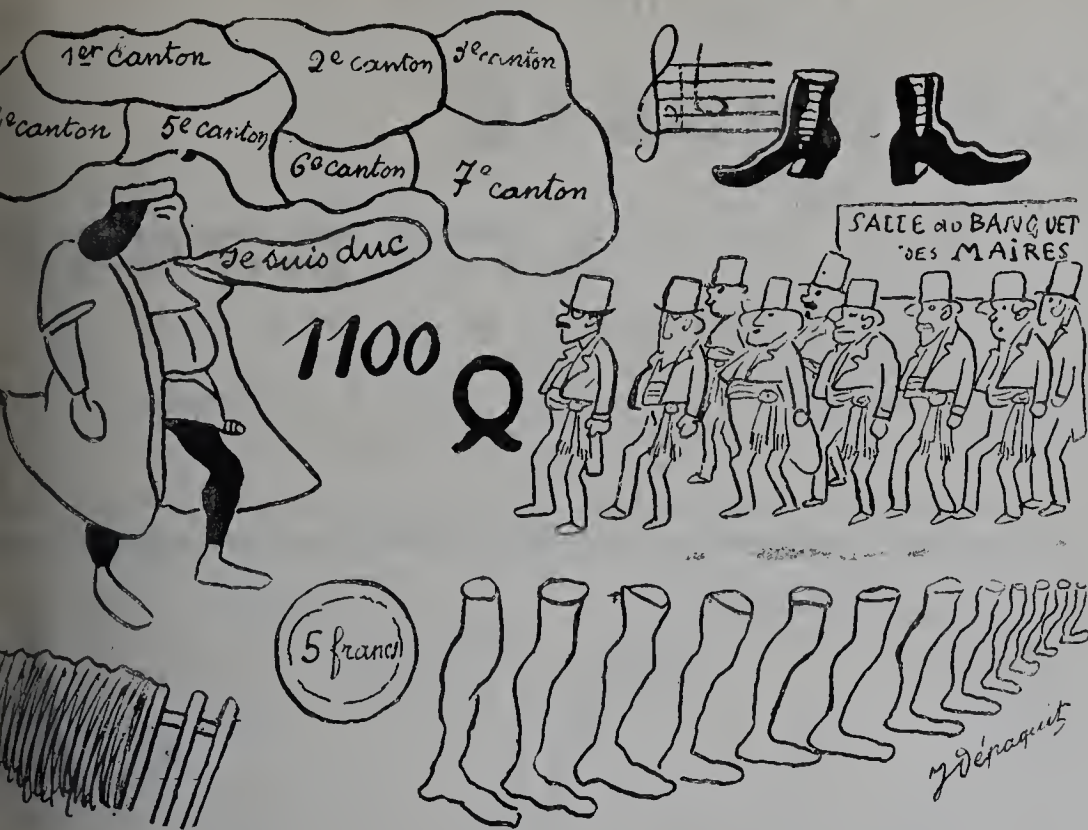 1er canton
2e canton
3e canton
e canton
5e canton
6e canton
7e canton
Je suis duc
SALLE DU BANQUET
DES MAIRES
1100
5 francs
J Dépaquit